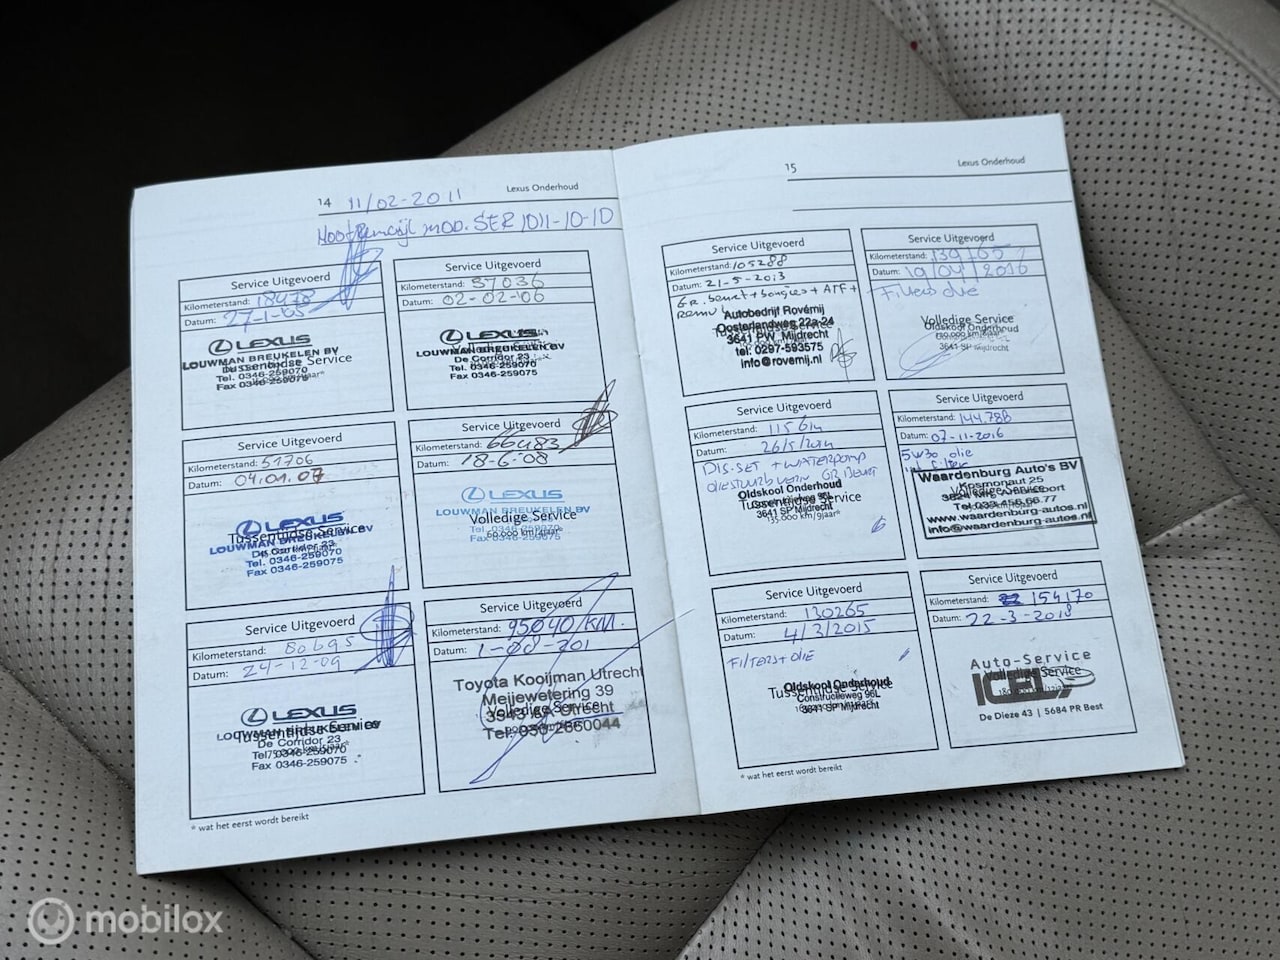 14 11/02-2011
Lexus Onderhoud
mod. SER 1011-10-10
Service Uitgevoerd
Kilometerstand: 18478
Datum: 27-1-05
LEXUS
LOUWMAN BREUKELEN BV
Tussentijdse Service
De Corridor 23
Tel. 0346-259070
Fax 0346-259075
Service Uitgevoerd
Kilometerstand: 37036
Datum: 02-02-06
LEXUS
LOUWMAN BREUKELEN BV
De Corridor 23
Tel. 0346-259070
Fax 0346-259075
Service Uitgevoerd
Kilometerstand: 51706
Datum: 04.01.07
LEXUS
LOUWMAN BREUKELEN BV
Tussentijdse Service
De Corridor 23
Tel. 0346-259070
Fax 0346-259075
Service Uitgevoerd
Kilometerstand: 66483
Datum: 18-6-08
LEXUS
LOUWMAN BREUKELEN BV
Volledige Service
60.000 km/4jaar*
Service Uitgevoerd
Kilometerstand: 80695
Datum: 24-12-09
LEXUS
LOUWMAN BREUKELEN BV
Tussentijdse Service
De Corridor 23
Tel. 0346-259070
Fax 0346-259075
Service Uitgevoerd
Kilometerstand: 95040/KM.
Datum:
Toyota Kooijman Utrecht
Meijewetering 39
Volledige Service
Tel. 030-2660044
* wat het eerst wordt bereikt
15
Lexus Onderhoud
Service Uitgevoerd
Kilometerstand: 105288
Datum: 21-5-2013
Gr. beurt + bougies + ATF +
Autobedrijf Rovémij
Oosterlandweg 22a-24
3641 PW Mijdrecht
tel: 0297-593575
info@rovemij.nl
Service Uitgevoerd
Kilometerstand: 139165
Datum: 19/04/2016
Filters olie
Volledige Service
Oldskool Onderhoud
3641 SP Mijdrecht
Service Uitgevoerd
Kilometerstand:
Datum: 26/5/2014
DIS.SET + WATERPOMP
Oldskool Onderhoud
Tussentijdse Service
3641 SP Mijdrecht
Service Uitgevoerd
Kilometerstand: 144.788
Datum: 07-11-2016
5W30 olie
filter
Waardenburg Auto's BV
Kosmonaut 25
Volledige Service
Tel. 033-456.66.77
www.waardenburg-autos.nl
info@waardenburg-autos.nl
Service Uitgevoerd
Kilometerstand: 130265
Datum: 4/3/2015
FILTERS + OLIE
Oldskool Onderhoud
Tussentijdse Service
Constructieweg 96L
3641 SP Mijdrecht
Service Uitgevoerd
Kilometerstand: 154170
Datum: 22-3-2018
Auto-Service
Volledige Service
De Dieze 43 | 5684 PR Best
* wat het eerst wordt bereikt
mobilox